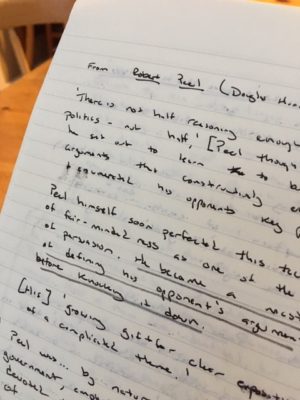 From Robert Peel (Douglas
'There is not half reasoning enough
politics - not half,' [Peel though
he set out to learn to be
arguments that constructively
+ his opponents key
Peel himself soon perfected this
of fair-minded ness as one of the
of persuasion. He became a
of defining his opponent's argument
before knocking it down.
[His] 'growing gift for clear exposition
of a complicated theme.'
Peel was... by nature
government,
devoted
of